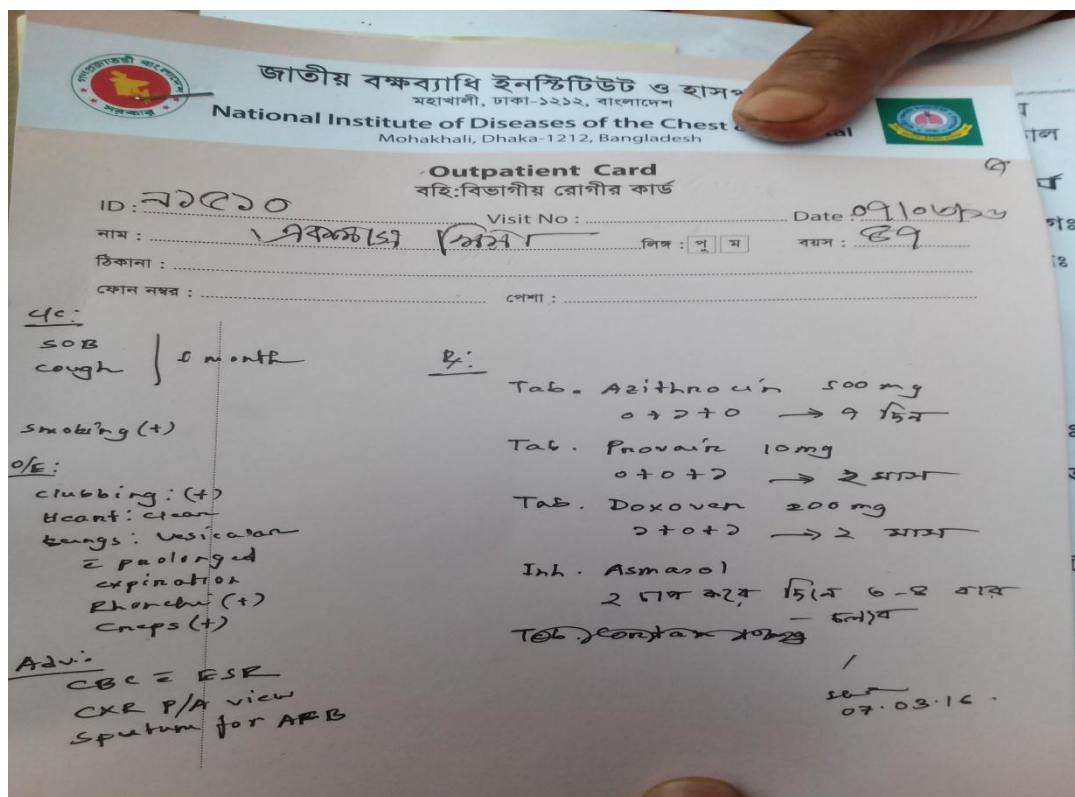 জাতীয় বক্ষব্যাধি ইনস্টিটিউট ও হাসপ
মহাখালী, ঢাকা-১২১২, বাংলাদেশ
National Institute of Diseases of the Chest
Mohakhali, Dhaka-1212, Bangladesh
Outpatient Card
বহি:বিভাগীয় রোগীর কার্ড
ID : ৯১৫১০ Visit No : Date : ০৭/০৩/১৬
নাম : লিঙ্গ : পু ম বয়স : ৫৭
ঠিকানা :
ফোন নম্বর : পেশা :
c/c:
SOB
cough month
smoking (+)
O/E:
clubbing: (+)
Heart: clear
Lungs: vesicular
c prolonged
expiration
Rhonchi (+)
Creps (+)
Adv:
CBC c ESR
CXR P/A view
Sputum for AFB
Rx:
Tab. Azithrocin 500 mg
০+১+০ → ৭ দিন
Tab. Provair 10mg
০+০+১ → ২ মাস
Tab. Doxoven 200 mg
১+০+১ → ১ মাস
Inh. Asmasol
২ চাপ করে দিনে ৩-৪ বার
- চলবে
07.03.16.